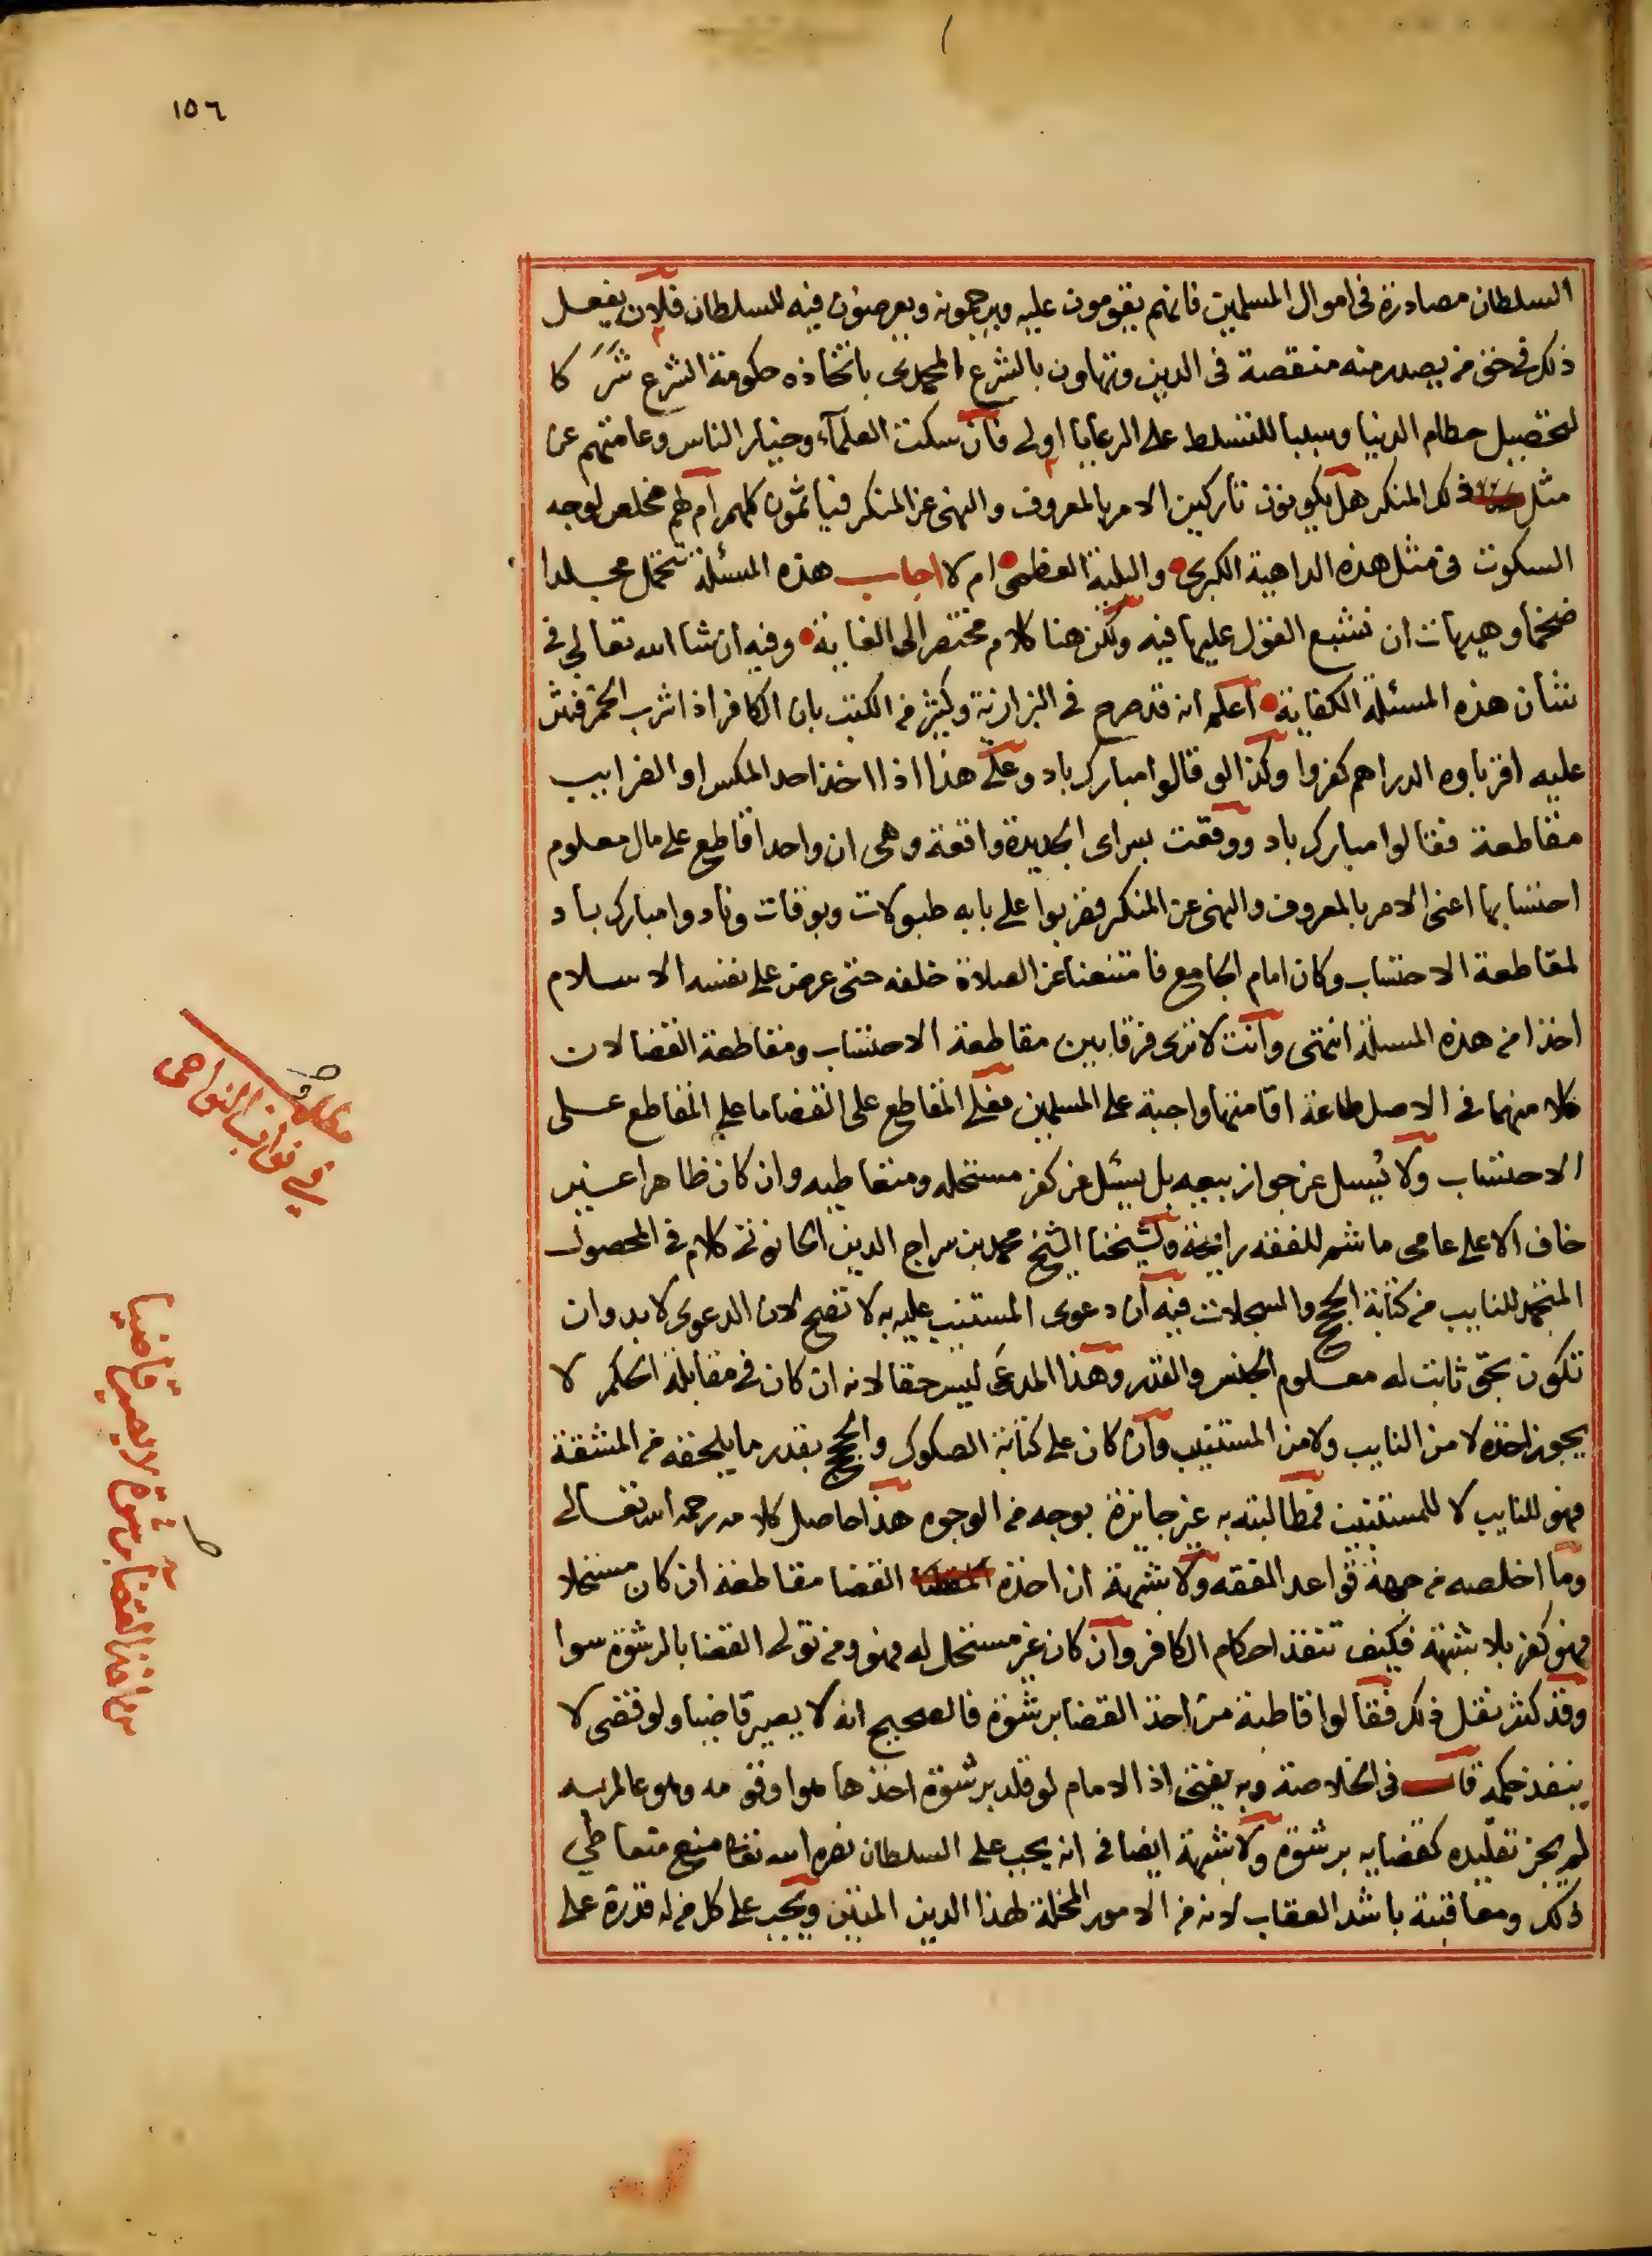 ١٥٦
السلطان مصادرة فى اموال المسلمين فانهم يقومون عليه ويرجمونه ويعرضون فيه للسلطان فلان يفعل
ذلك فى حق من يصدر منه منقصة فى الدين وتهاون بالشرع المحمدى باتخاذه حكومة الشرع شركا
لتحصيل حطام الدنيا وسببا للتسلط على الرعايا اولى فان سكت العلمآء وخيار الناس وعامتهم عن
مثل ذلك المنكر هل يكونون تاركين الامر بالمعروف والنهى عن المنكر فيأثمون كلهم ام لهم مخلص لوجه
السكوت فى مثل هذه الداهية الكبرى والبلية العظمى ام لا اجاب هذه المسئلة تتحمل مجلدا
ضخما وهيهات ان نشبع القول عليها فيه ولكن هنا كلام مختصر الى الغاية وفيه ان شا الله تعالى فى
شأن هذه المسئلة الكفاية اعلم انه قد صرح فى البزازية وكثير من الكتب بان الكافر اذا شرب الخمر فنثر
عليه اقرباوه الدراهم كفروا وكذا لو قالوا مبارك باد وعلى هذا اذا اخذ احد المكس او الضرايب
مقاطعة فقالوا مبارك باد ووقعت بسراى الجديدة واقعة وهى ان واحدا قاطع على مال معلوم
احتسابها اعنى الامر بالمعروف والنهى عن المنكر فضربوا على بابه طبولات وبوقات ونادوا مبارك باد
لمقاطعة الاحتساب وكان امام الجامع فامتنعنا عن الصلاة خلفه حتى عرض على نفسه الاسلام
اخذا من هذه المسئلة انتهى وانت لا ترى فرقا بين مقاطعة الاحتساب ومقاطعة القضا لان
كلا منهما فى الاصل طاعة اقامتها واجبة على المسلمين فعلى المقاطع على القضا ما على المقاطع على
الاحتساب ولا يُسئل عن جواز بيعه بل يسئل عن كفر مستحله ومتعاطيه وان كان ظاهرا غير
خاف الا على عامى ما شم للفقه رايحة ولشيخنا الشيخ محمد بن سراج الدين الحانوتى كلام فى المحصول
المتجمد للنايب من كتابة الحجج والسجلات فيه ان دعوى المستنيب عليه به لا تصح لان الدعوى لا بد وان
تكون بحق ثابت له معلوم الجنس والقدر وهذا المدعى ليس حقا لانه ان كان فى مقابلة الحكم لا
يجوز اخذه لا من النايب ولا من المستنيب وان كان على كتابة الصكوك والحجج بقدر ما يلحقه من المشقة
فهو للنايب لا للمستنيب فمطالبته به غير جايزة بوجه من الوجوه هذا حاصل كلامه رحمه الله تعالى
وما اخلصه من جهة قواعد الفقه ولا شبهة ان اخذه القضا مقاطعة ان كان مستحلا
فهو كفر بلا شبهة فكيف تنفذ احكام الكافر وان كان غير مستحل له فهو ومن تولى القضا بالرشوة سوا
وقد كثر نقل ذلك فقالوا قاطبة من اخذ القضا برشوة فالصحيح انه لا يصير قاضيا ولو قضى لا
ينفذ حكمه قال فى الخلاصة وبه يفتى اذ الامام لو قلد برشوة اخذها هو او قومه وهو عالم به
لم يجز تقليده كقضايه برشوة ولا شبهة ايضا فى انه يجب على السلطان نصره الله تعالى منع متعاطي
ذلك ومعاقبته باشد العقاب لانه من الامور المخلة لهذا الدين المتين ويجب على كل من له قدرة على
مطلب
فى نواب النواحى
من اخذ القضا برشوة لا يصير قاضيا